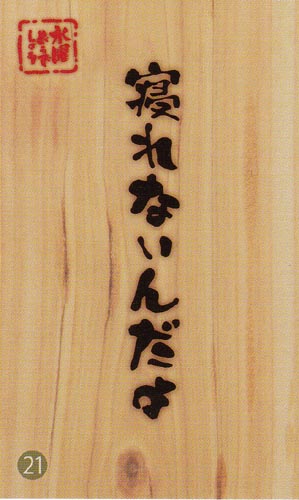 水曜
どうでしょう
寝れないんだよ
21